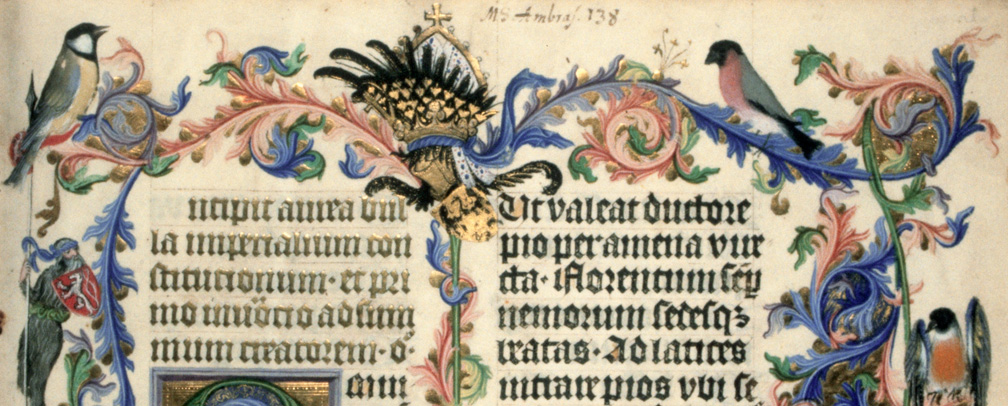 MS. Ambras. 138.
Incipit aurea bul
la imperialium con
stitucionum · et pri
mo inuocio ad sum
mum creatorem · O ·
mni
Ut valeat ductore
pio per amena vire
cta · Florentum
nemorum sedesqz
beatas · Ad latices
intrare pios vbi se